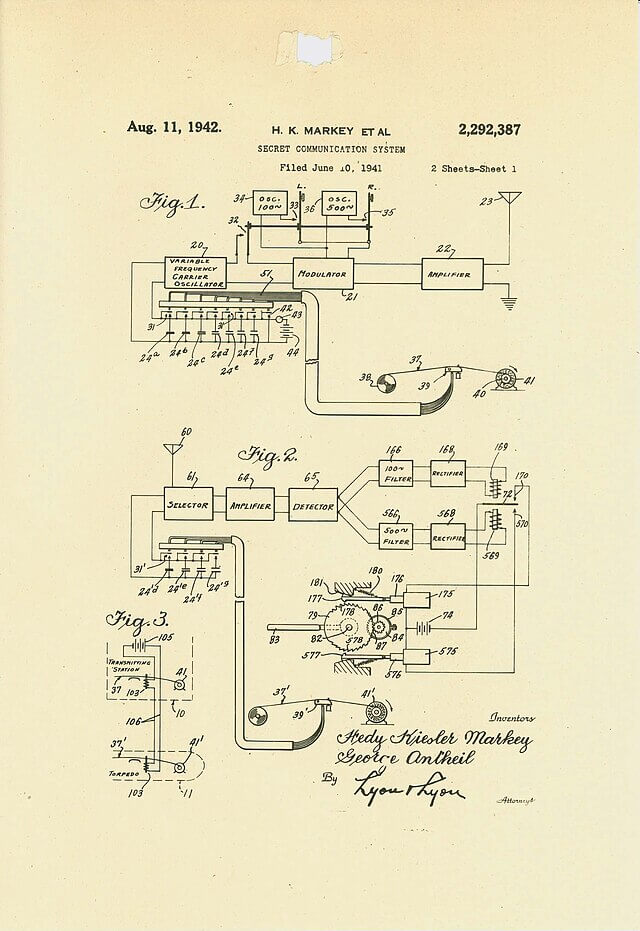 Aug. 11, 1942.
H. K. MARKEY ET AL
2,292,387
SECRET COMMUNICATION SYSTEM
Filed June 10, 1941
2 Sheets-Sheet 1
Fig.1.
34
OSC. 100~
L.
33
36
OSC. 500~
R.
35
23
32
20
VARIABLE FREQUENCY CARRIER OSCILLATOR
51
MODULATOR
21
22
AMPLIFIER
31
42
43
44
24a
24b
24c
24d
24e
24f
24g
37
38
39
40
41
60
Fig.2.
61
SELECTOR
64
AMPLIFIER
65
DETECTOR
166
100~ FILTER
168
RECTIFIER
169
170
72
566
500~ FILTER
568
RECTIFIER
569
570
31'
24'd
24'e
24'f
24'g
180
181
176
175
177
178
79
86
85
74
83
82
578
87
84
577
576
575
Fig.3.
105
TRANSMITTING STATION
41
37
103
10
106
37'
41'
TORPEDO
103
11
37'
39'
41'
Inventors
Hedy Kiesler Markey
George Antheil
By
Lyon & Lyon
Attorneys